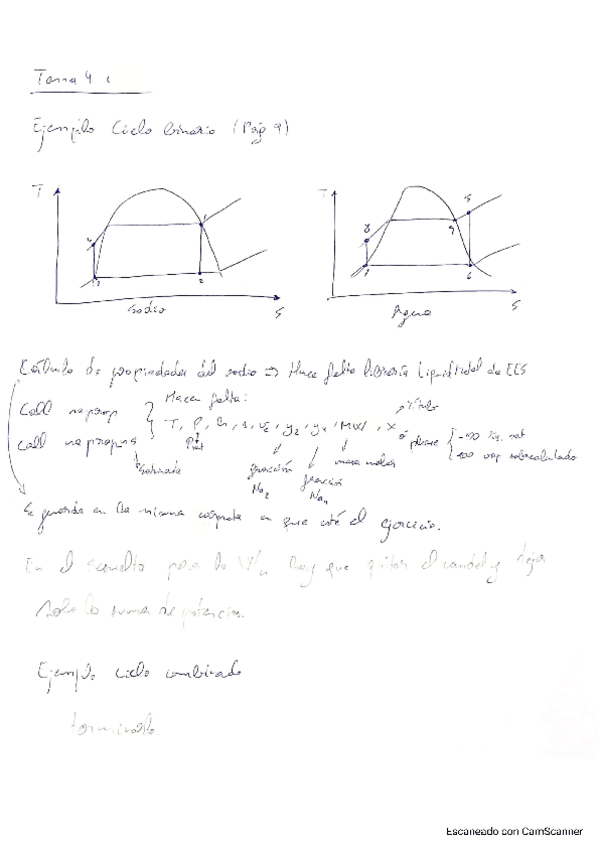 Tema 4:
Ejemplo Ciclo binario (Pág 9)
T T
4 1 8 9 5
3 2 7 6
S S
Sodio Agua
Cálculo de propiedades del sodio => Hace falta librería LiquidMetal de EES
Call naprop Hacen falta: Título
Call napropns T, P, h, s, v, y2, y4, MW, x
phase -100 líq. sat
100 vap sobrecalentado
Psat
Saturada fracción fracción masa molar
Na2 Na4
Se guarda en la misma carpeta en que esté el ejercicio.
En el resuelto para la hay que quitar el y dejar
solo la suma de potencias.
Ejemplo ciclo combinado
terminarlo.
Escaneado con CamScanner